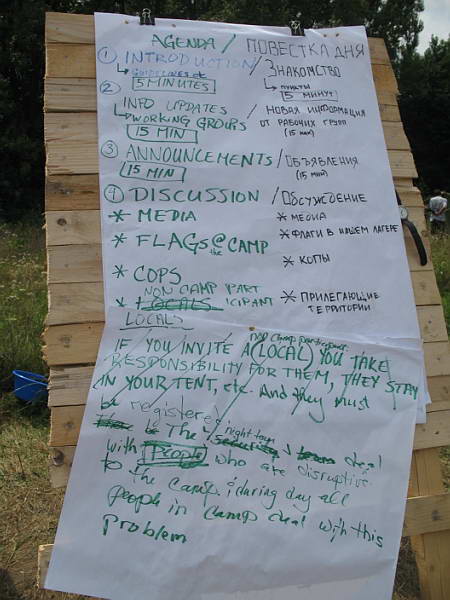 AGENDA / ПОВЕСТКА ДНЯ
① INTRODUCTION / ЗНАКОМСТВО
GUIDELINES пункты
5 MINUTES 5 МИНУТ
② INFO UPDATES / НОВАЯ ИНФОРМАЦИЯ
WORKING GROUPS ОТ РАБОЧИХ ГРУПП
15 MIN (15 мин)
③ ANNOUNCEMENTS / ОБЪЯВЛЕНИЯ
15 MIN (15 мин)
④ DISCUSSION / ОБСУЖДЕНИЕ
* MEDIA * МЕДИА
* FLAGS @ the CAMP * ФЛАГИ В НАШЕМ ЛАГЕРЕ
* COPS * КОПЫ
NON CAMP PART
* + LOCALS ICIPANT * ПРИЛЕГАЮЩИЕ ТЕРРИТОРИИ
LOCALS
non camp participant
IF YOU INVITE A (LOCAL) YOU TAKE
RESPONSIBILITY FOR THEM, THEY STAY
IN YOUR TENT, etc. And they must
be registered
The night team deal
with People who are disruptive
to the camp. ; during day all
people in camp deal with this
problem